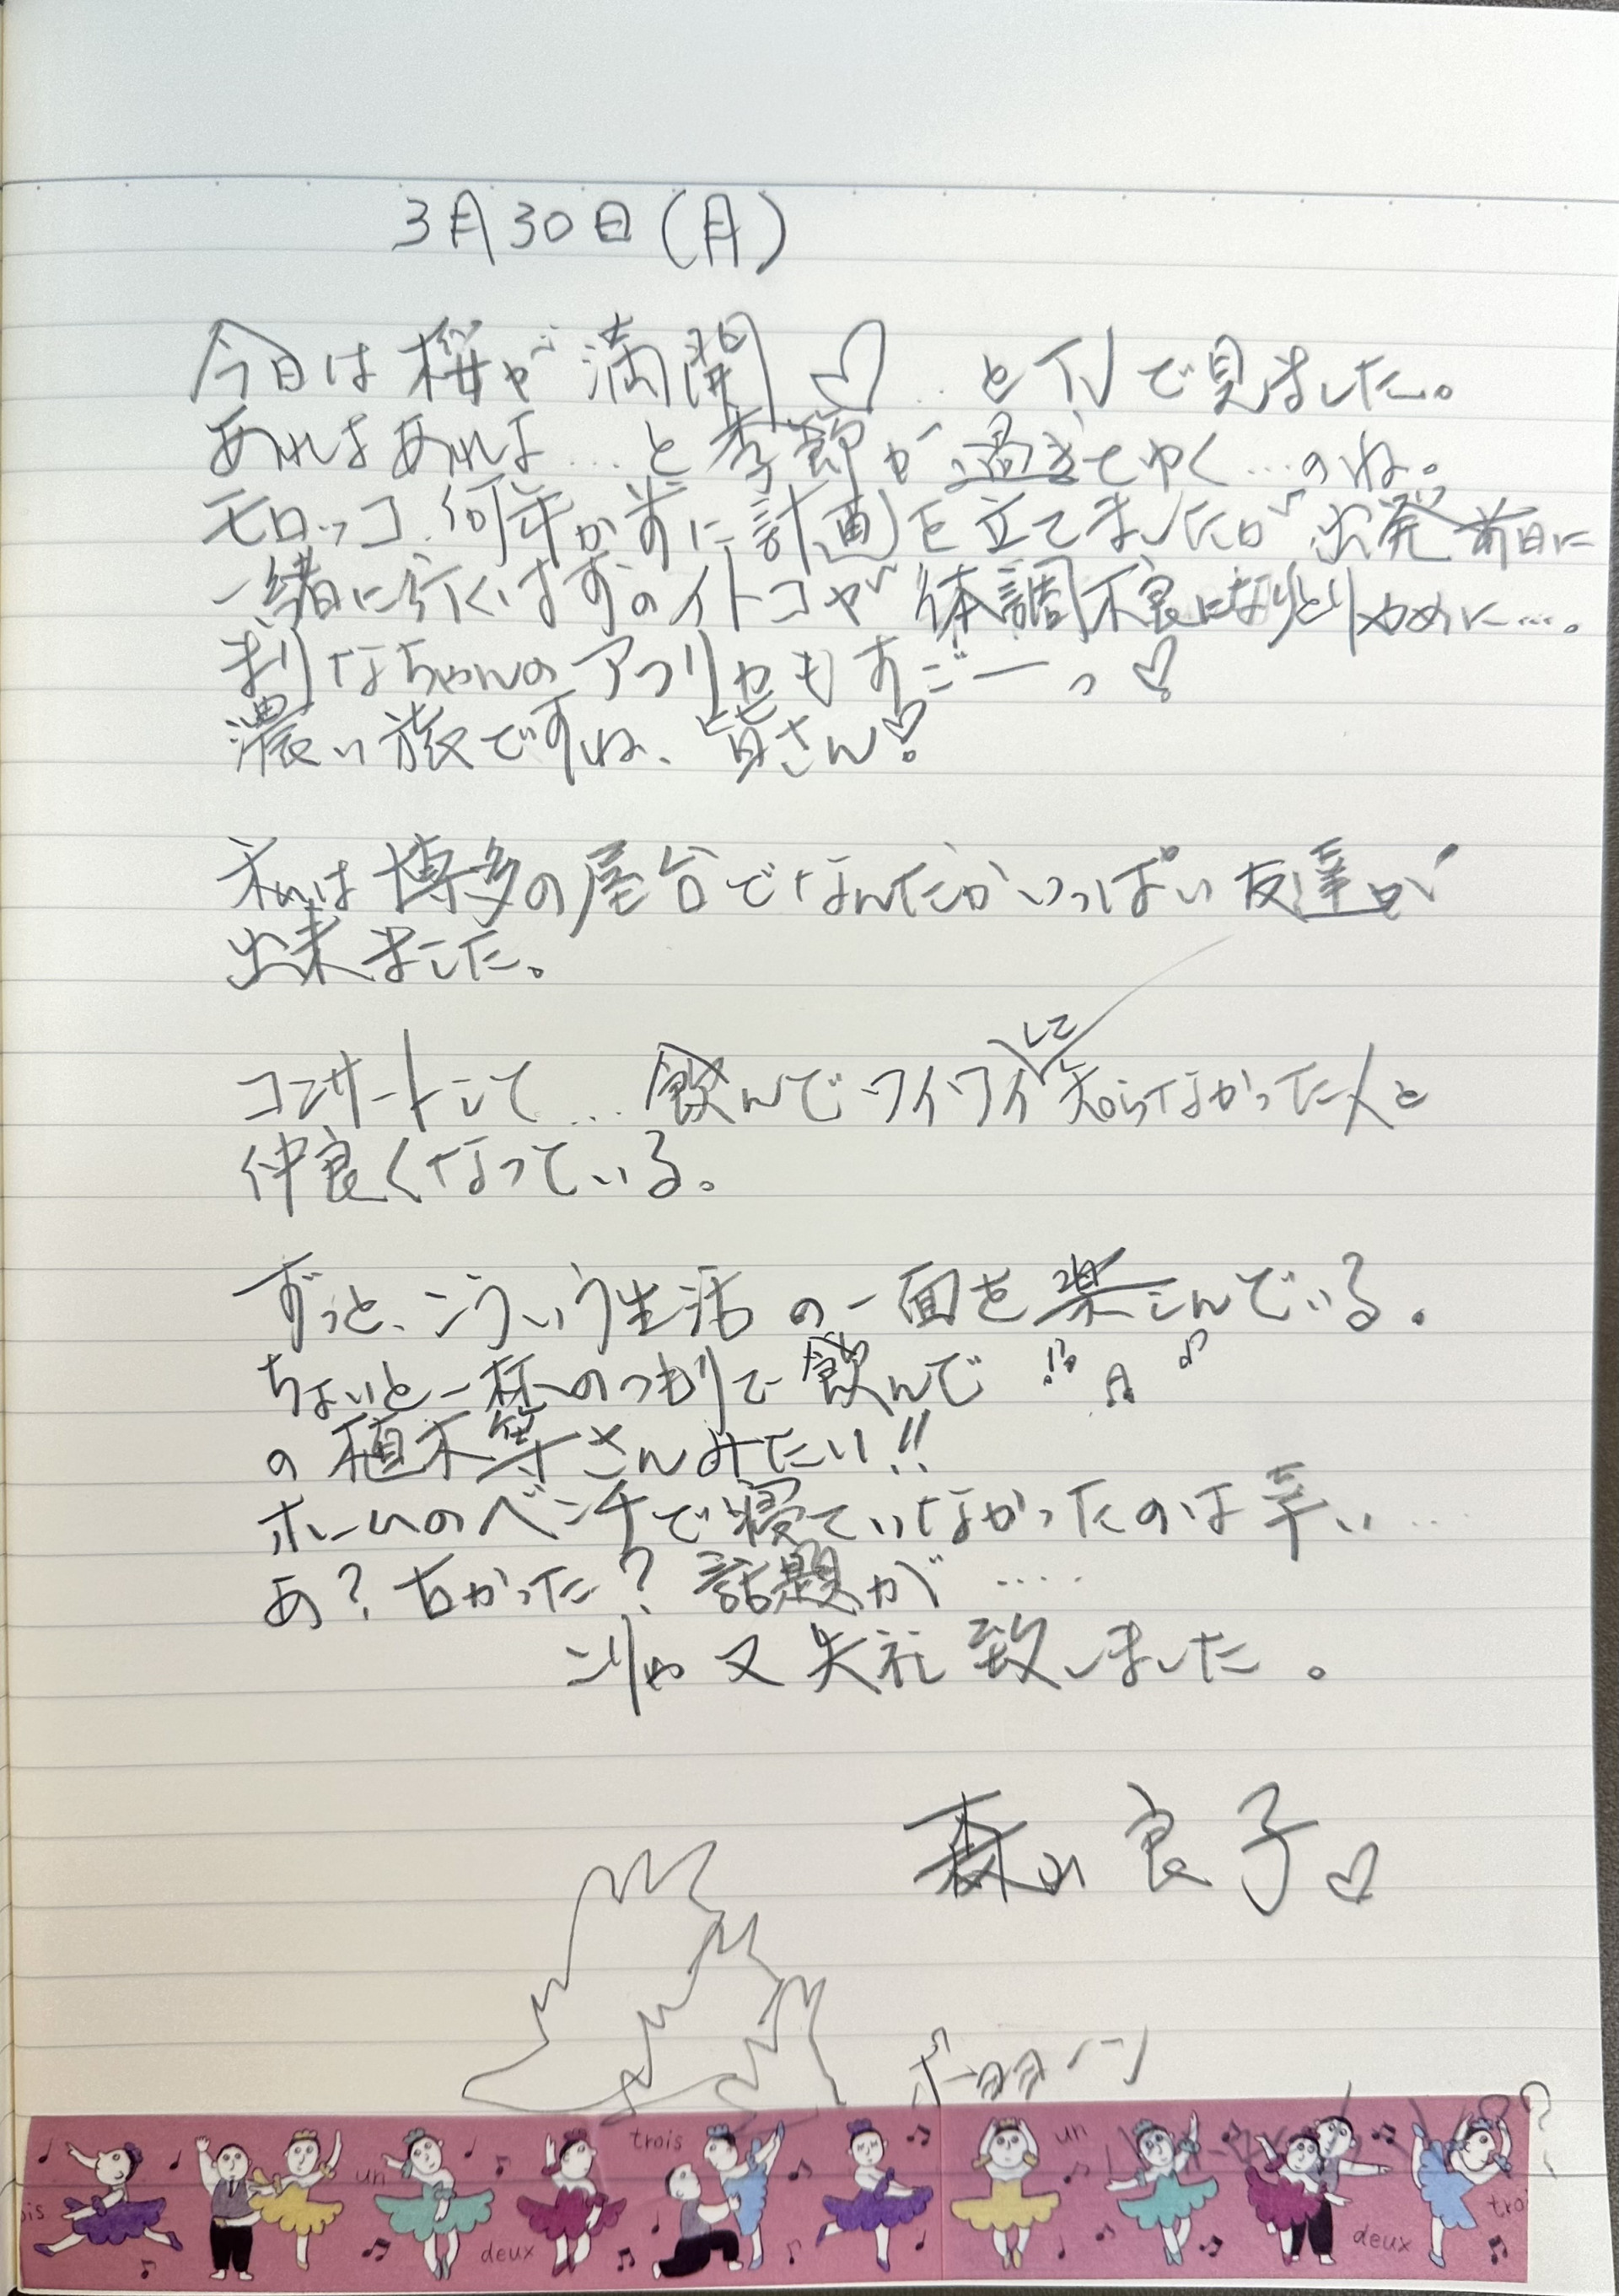 3月30日(月)
今日は桜が満開♡...とインで見ました。
あれよあれよ...と季節が過ぎてゆく...のね。
モロッコ、何年か前に計画を立てましたが出発前日に
一緒に行くはずのイトコが体調不良になりとりやめに....。
まりなちゃんのアフリカもすごーっ♡
濃い旅ですね、皆さん♡
私は博多の屋台でなんだかいっぱい友達が
出来ました。
コンサートして...飲んでワイワイして知らなかった人と
仲良くなっている。
ずっと、こういう生活の一面を楽しんでいる。
ちょいと一杯のつもりで飲んで♪
の植木等さんみたい!!
ホームのベンチで寝ていなかったのは幸い....
あ?古かった?話題が....
こりゃ又失礼致しました。
森山良子♡
trois un deux trois un deux trois